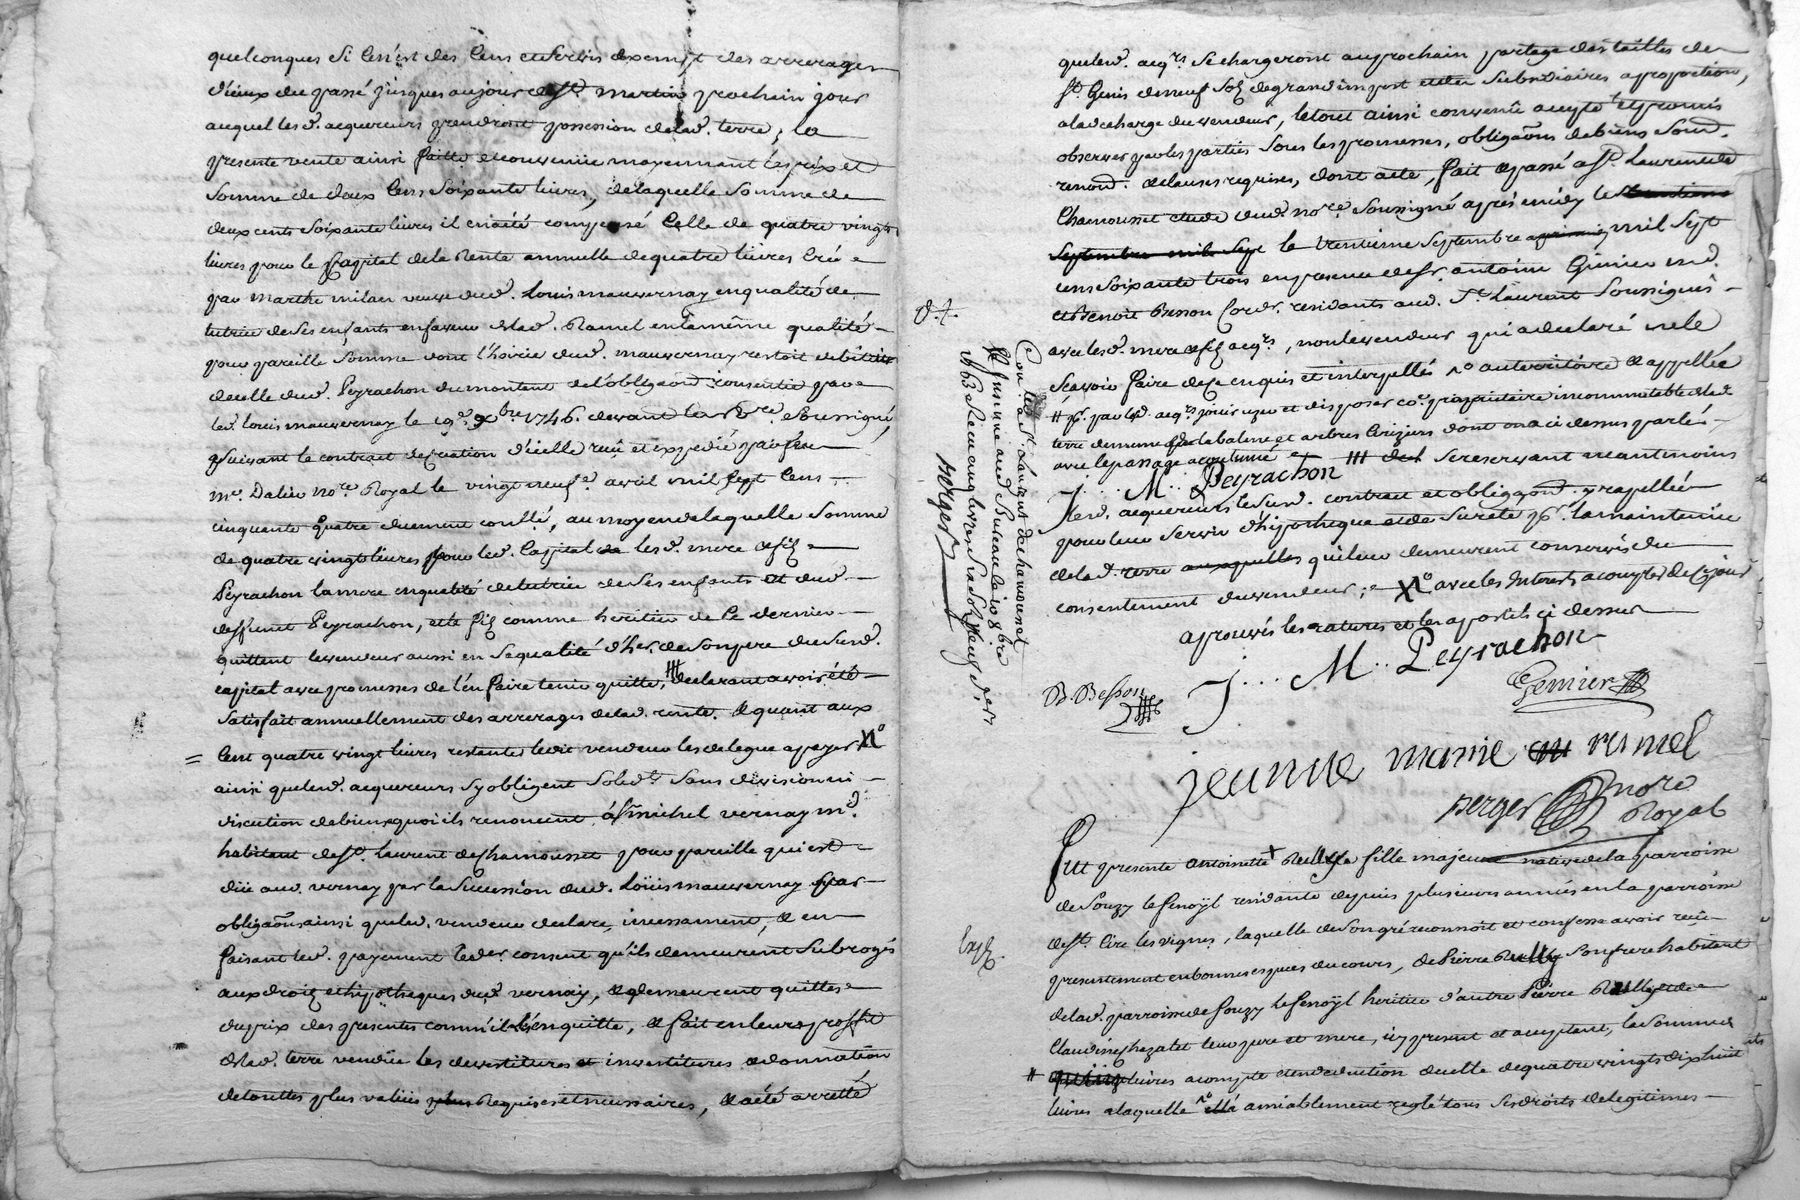 quelconques si cen'est des cens et servis exempt des arrerages
d'iceux du passé jusques au jour de st. martin prochain jour
auquel lesd. acquereurs prendront possession delad. terre, la
presente vente ainsi faitte et convenüe moyennant le prix et
somme de deux cens soixante livres, de laquelle somme de
deux cents soixante livres il en a été compensé celle de quatre vingts
livres pour le capital de la rente annuelle de quatre livres créé
par marthe milan veuve dud. Louis mauvernay en qualité de
tutrice de ses enfants en faveur delad. Ramel en la même qualité
pour pareille somme dont l'hoirie dud. mauvernay restoit debitrice
de celle dud. Peyrachon du montant de l'obligaôn consentie par
led. Louis mauvernay le 19e. xbre 1746. devant le nore. soussigné,
suivant le contract de création d'icelle reçu et expédié par
me. Dalin nore. Royal le vingt neufe. avril mil sept cens
cinquante quatre duement conllé, au moyen de laquelle somme
de quatre vingts livres pour led. capital lesd. mere & fils
Peyrachon la mere en qualité de tutrice de ses enfants et dud.
deffunt Peyrachon, et le fils comme heritier de ce dernier
quittent le vendeur aussi en sa qualité d'her. de son pere dususd.
capital avec promesses de l'en faire tenir quitte, declarant avoir été
satisfait annuellement des arrerages delad. rente. & quant aux
= cent quatre vingt livres restante ledit vendeur les delegue a payer
ainsi que led. acquereurs s'y obligent solidt. sans division ni
discution de biens a quoi ils renoncent, à sr. michel vernay md.
habitant de st. laurent de chamousset pour pareille qui est
düe aud. vernay par la succession dud. Loüis mauvernay par
obligaôns ainsi que led. vendeur declare, incessament, & en
faisant led. payement led. consent qu'ils demeurent subrogés
aux droits et hypotheques dud. vernay, & demeurent quittes
du prix des presentes comm'il les en quitte, & fait en leur proffit
delad. terre vendüe les devestitures et investitures & donnation
de touttes plus values requises et necessaires, & a été arretté
que led. acqrs. se chargeront au prochain partage des tailles de
st. Genis de neuf sols de grand impost et des subsidiaires a proportion,
a la decharge du vendeur, le tout ainsi convenu accepté et promis
observer par les parties sous les promesses, obligaôns de biens soumd.
renond. & clauses requises, dont acte, fait & passé a st. Laurent de
Chamousset etude dud. nore. soussigné après midy le
septembre mil sept le trentieme septembre mil sept
cens soixante trois en presence de sr. antoine Gemier md.
et Benoit Besson Cord. residants aud. st. Laurent soussignés
avec lesd. mere & fils acqrs., non le vendeur qui a declaré ne le
scavoir faire de ce enquis et interpellés ro au territoire & appellée
# pr. par led. acqrs jouir user et disposer co. proprietaire incommutable delad.
terre et arbres ceriziers dont on a ci dessus parlé
avec le passage acoutumé # se reservant neantmoins
J... M.. Peyrachon
lesd. acquereurs lesusd. contract et obligaôn y rapellée
pour leur servir d'hypotheque et de sureté pr. la maintenüe
delad. terre auxquelles qu'ils leur demeurent conservés du
consentement du vendeur; avec les interets a compter de ce jour
aprouvés les ratures et les apostils ci dessus
J... M.. Peyrachon
B. Besson
Gemier
jeanne marie ramel
perger nore Royal
d. f.
Conllé a st. Laurent de chamousset
aud. Bureau le 10 8bre
1763 Receu cinq livres six sols neuf ds.
perger
Fut presente antoinette Reully fille majeure native de la parroisse
de souzy le fenoÿl residante depuis plusieurs années en la parroisse
de st. Cire les vignes, laquelle de son gré reconnoit et confesse avoir reçu
presentement en bonnes especes du cours, de Pierre Reully son frere habitant
delad. parroisse de souzy le fenoÿl heritier d'autre Pierre Reully et de
Claudine chazalet leur pere et mere, icy present et acceptant, la somme
# livres a compte et en deduction de celle de quatre vingts dix huit
livres a laquelle amiablement reglé tous ses droits de legitimes
Expé.